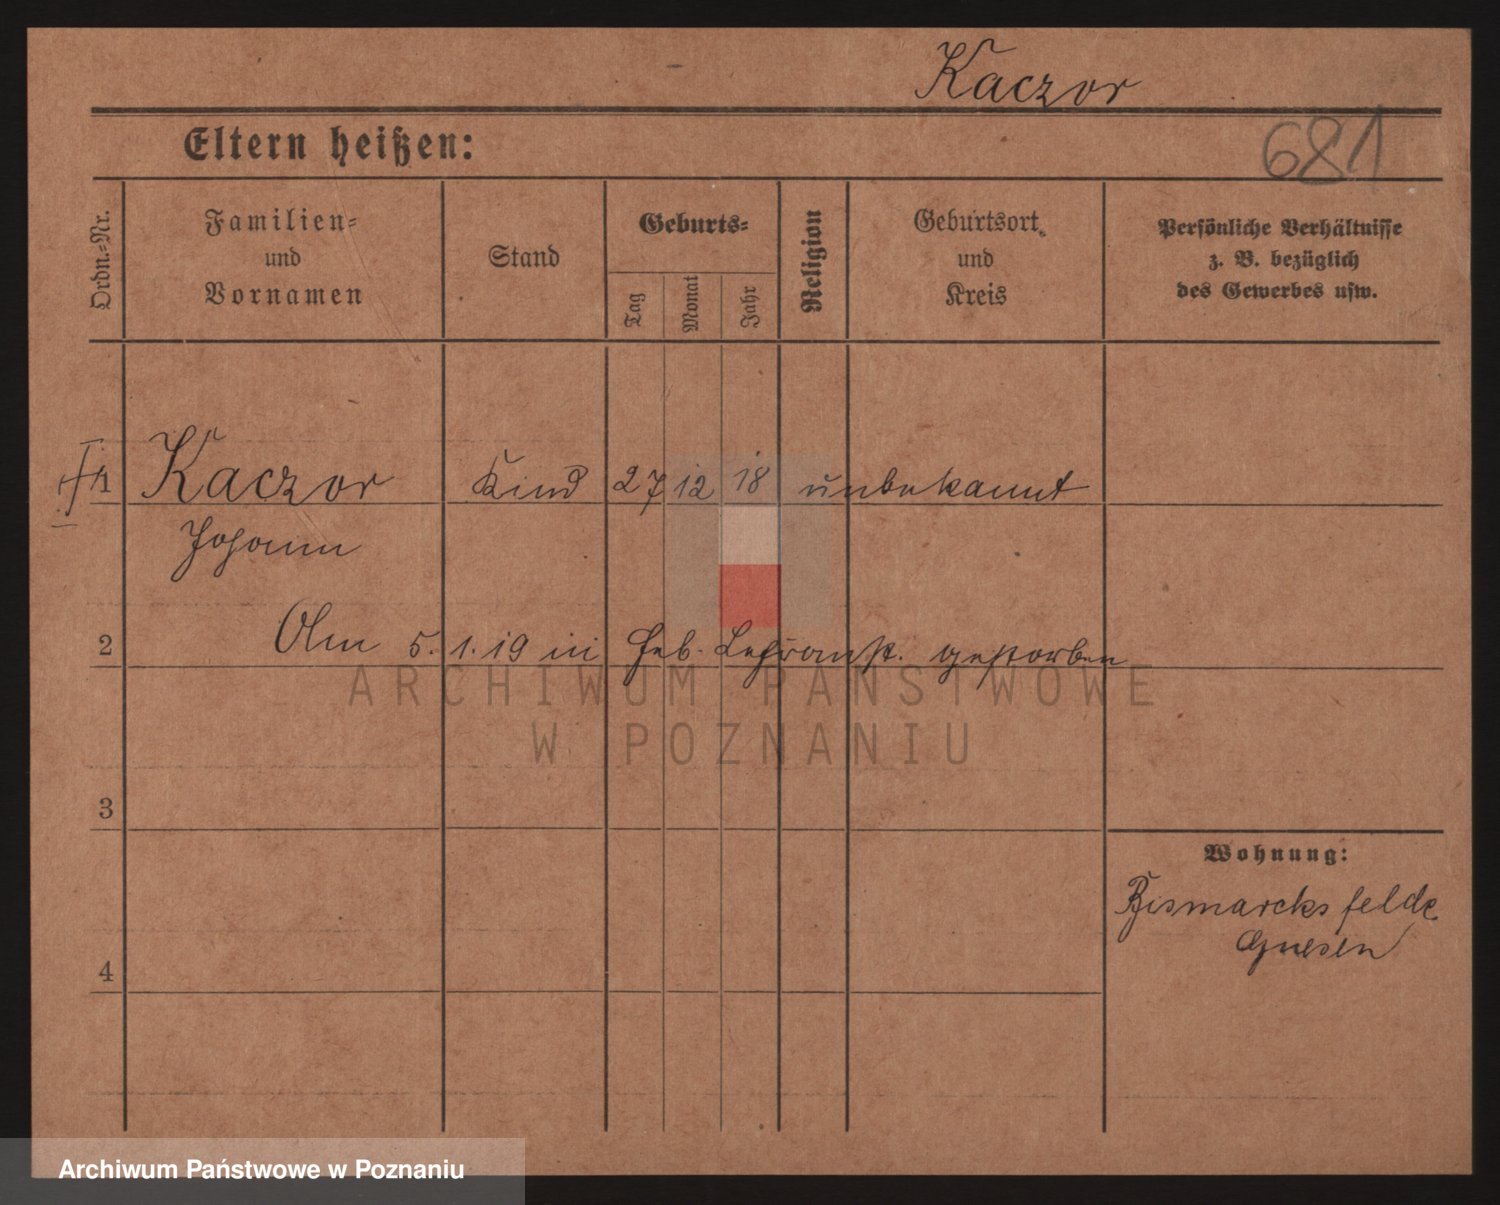 Kaczor
Eltern heißen:
681
Ordn.=Nr.
Familien=
und
Vornamen
Stand
Geburts=
Tag
Monat
Jahr
Religion
Geburtsort
und
Kreis
Persönliche Verhältnisse
z. B. bezüglich
des Gewerbes usw.
1 Kaczor Kind 27 12 18 unbekannt
Johann
2 Am 5. 1. 19 in Heb. Lehranst. gestorben
ARCHIWUM PAŃSTWOWE
W POZNANIU
3
Wohnung:
Bismarcksfelde
Gnesen
4
Archiwum Państwowe w Poznaniu